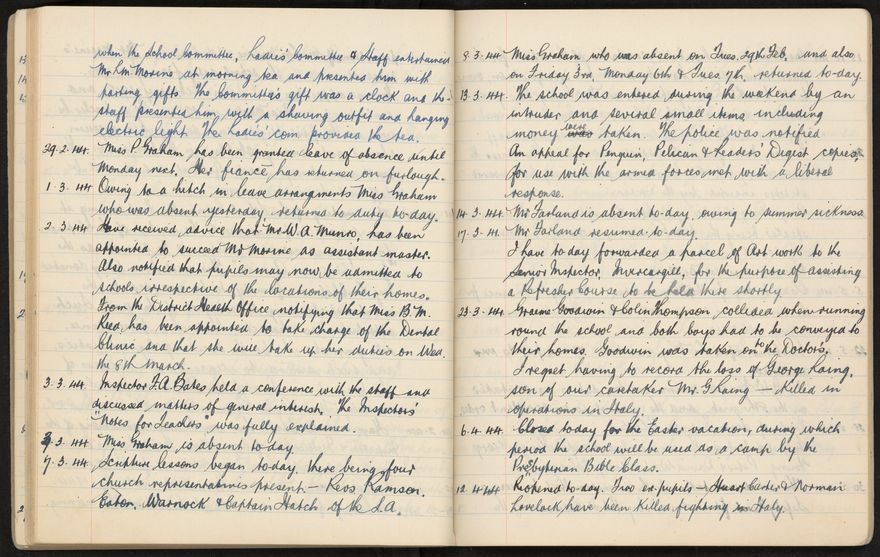 when the School Committee, Ladies' Committee & Staff entertained
Mr. Morine at morning tea and presented him with
parting gifts. The Committee's gift was a clock and the
staff presented him with a shaving outfit and hanging
electric light. The Ladies' com provided the tea.
29.2.44. Miss P. Graham has been granted leave of absence until
Monday next. Her fiancé has returned on furlough.
1.3.44 Owing to a hitch in leave arrangments Miss Graham
who was absent yesterday returned to duty to-day.
2.3.44 Have received advice that Mr. W. A. Munro, has been
appointed to succeed Mr Morine as assistant master.
Also notified that pupils may now be admitted to
schools irrespective of the locations of their homes.
From the District Health Office notifying that Miss B. M.
Reed has been appointed to take charge of the Dental
Clinic and that she will take up her duties on Wed.
the 8th March.
3.3.44. Inspector F.A. Bates held a conference with the staff and
discussed matters of general interest. The Inspectors'
"Notes for Teachers" was fully explained.
3.44. Miss Graham is absent to-day
7.3.44. Scripture lessons began to-day. There being four
church representatives present - Revs Ramson,
Eaton, Warnock & Captain Hatch of the S.A.
8.3.44 Miss Graham who was absent on Tues. 29th Feb. and also
on Friday 3rd, Monday 6th & Tues. 7th, returned to-day.
13.3.44. The school was entered during the weekend by an
intruder and several small items including
money were taken. The police was notified
An appeal for Penguin, Pelican & Readers' Digest copies
for use with the armed forces met with a liberal
response.
14.3.44. Mr Farland is absent to-day owing to summer sickness.
17.3.44. Mr Farland resumed to-day.
I have to day forwarded a parcel of Art work to the
Senior Inspector, Invercargill, for the purpose of assisting
a Refresher Course to be held there shortly
23.3.44. Graeme Goodwin & Colin Thompson collided when running
round the school and both boys had to be conveyed to
their homes. Goodwin was taken on to the Doctor's.
I regret having to record the loss of George Laing,
son of our caretaker Mr. G Laing - killed in
operations in Italy.
6.4.44 Closed to day for the Easter vacation, during which
period the school will be used as a camp by the
Presbyterian Bible Class.
12.4.44 Reopened to-day. Two ex-pupils - Stuart Carter & Norman
Lovelock have been killed fighting in Italy.